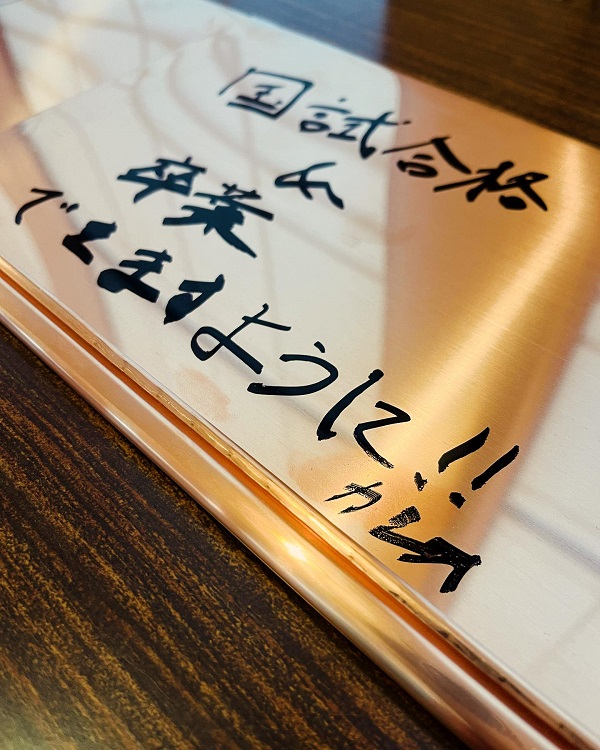 国試合格
&
卒業
できますように!!